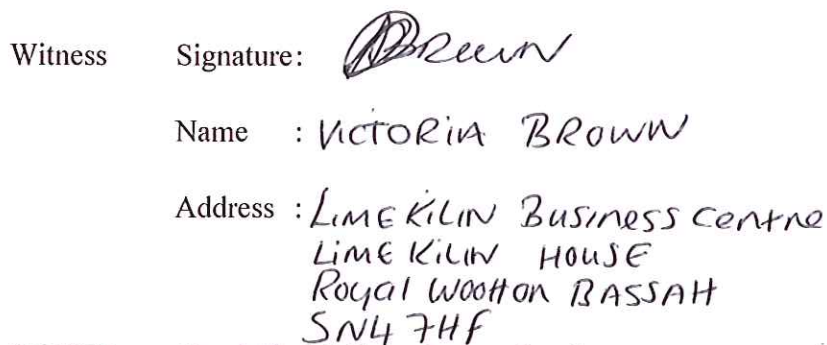 Witness Signature: Brown
Name : VICTORIA BROWN
Address : LIME KILN Business Centre
LIME KILN HOUSE
Royal Wootton BASSAtt
SN4 7HF